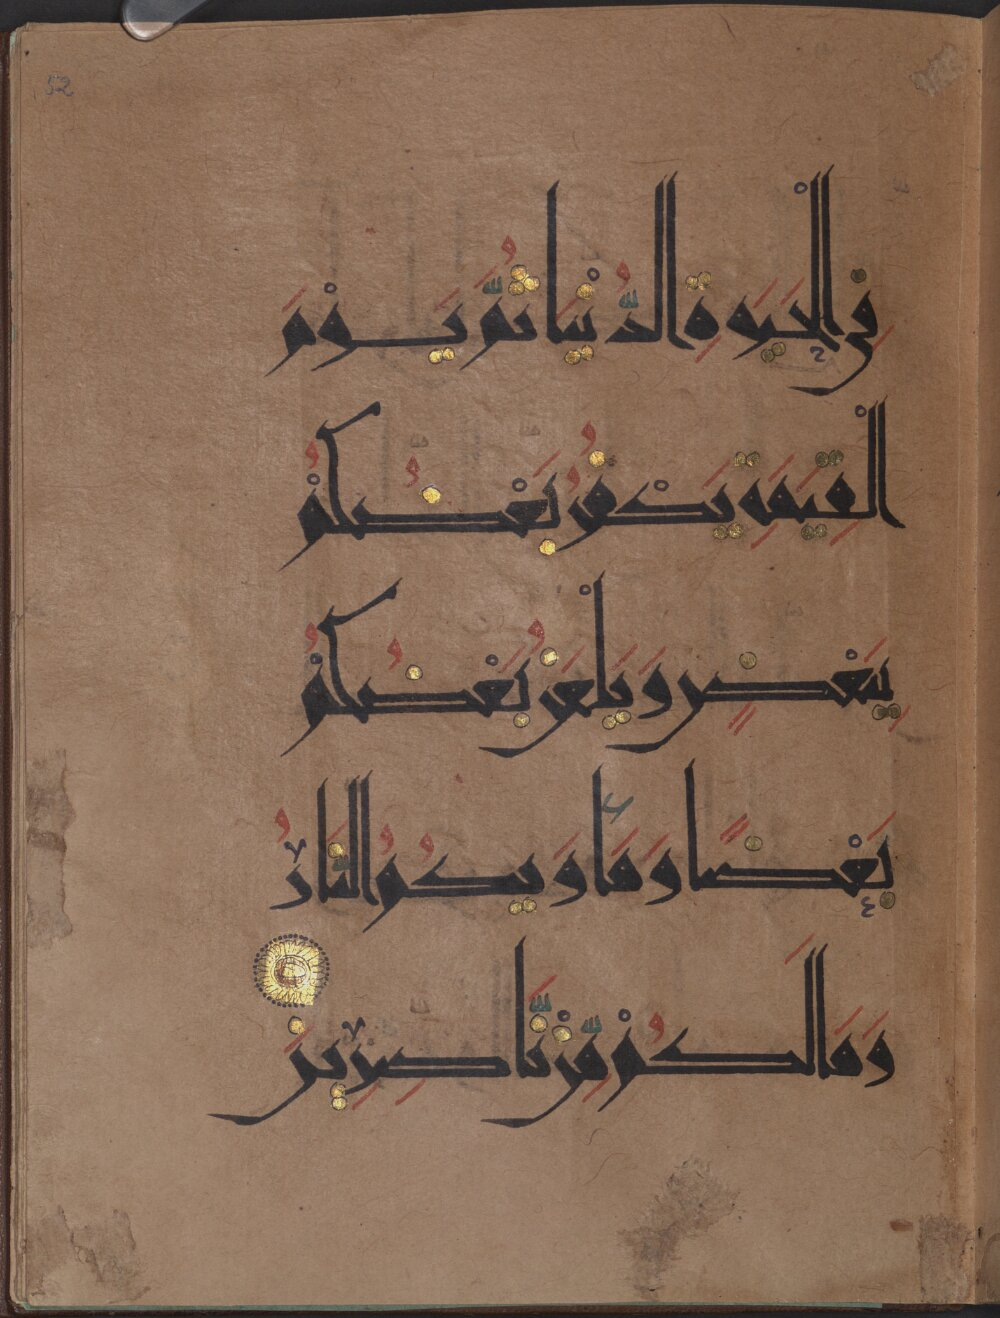 52
فِي الْحَيَوةِ الدُّنْيَا ثُمَّ يَوْمَ
الْقِيَمَةِ يَكْفُرُ بَعْضُكُمْ
بِبَعْضٍ وَيَلْعَنُ بَعْضُكُمْ
بَعْضًا وَمَأْوَيكُمُ النَّارُ
وَمَالَكُمْ مِّنْ نَّاصِرِينَ